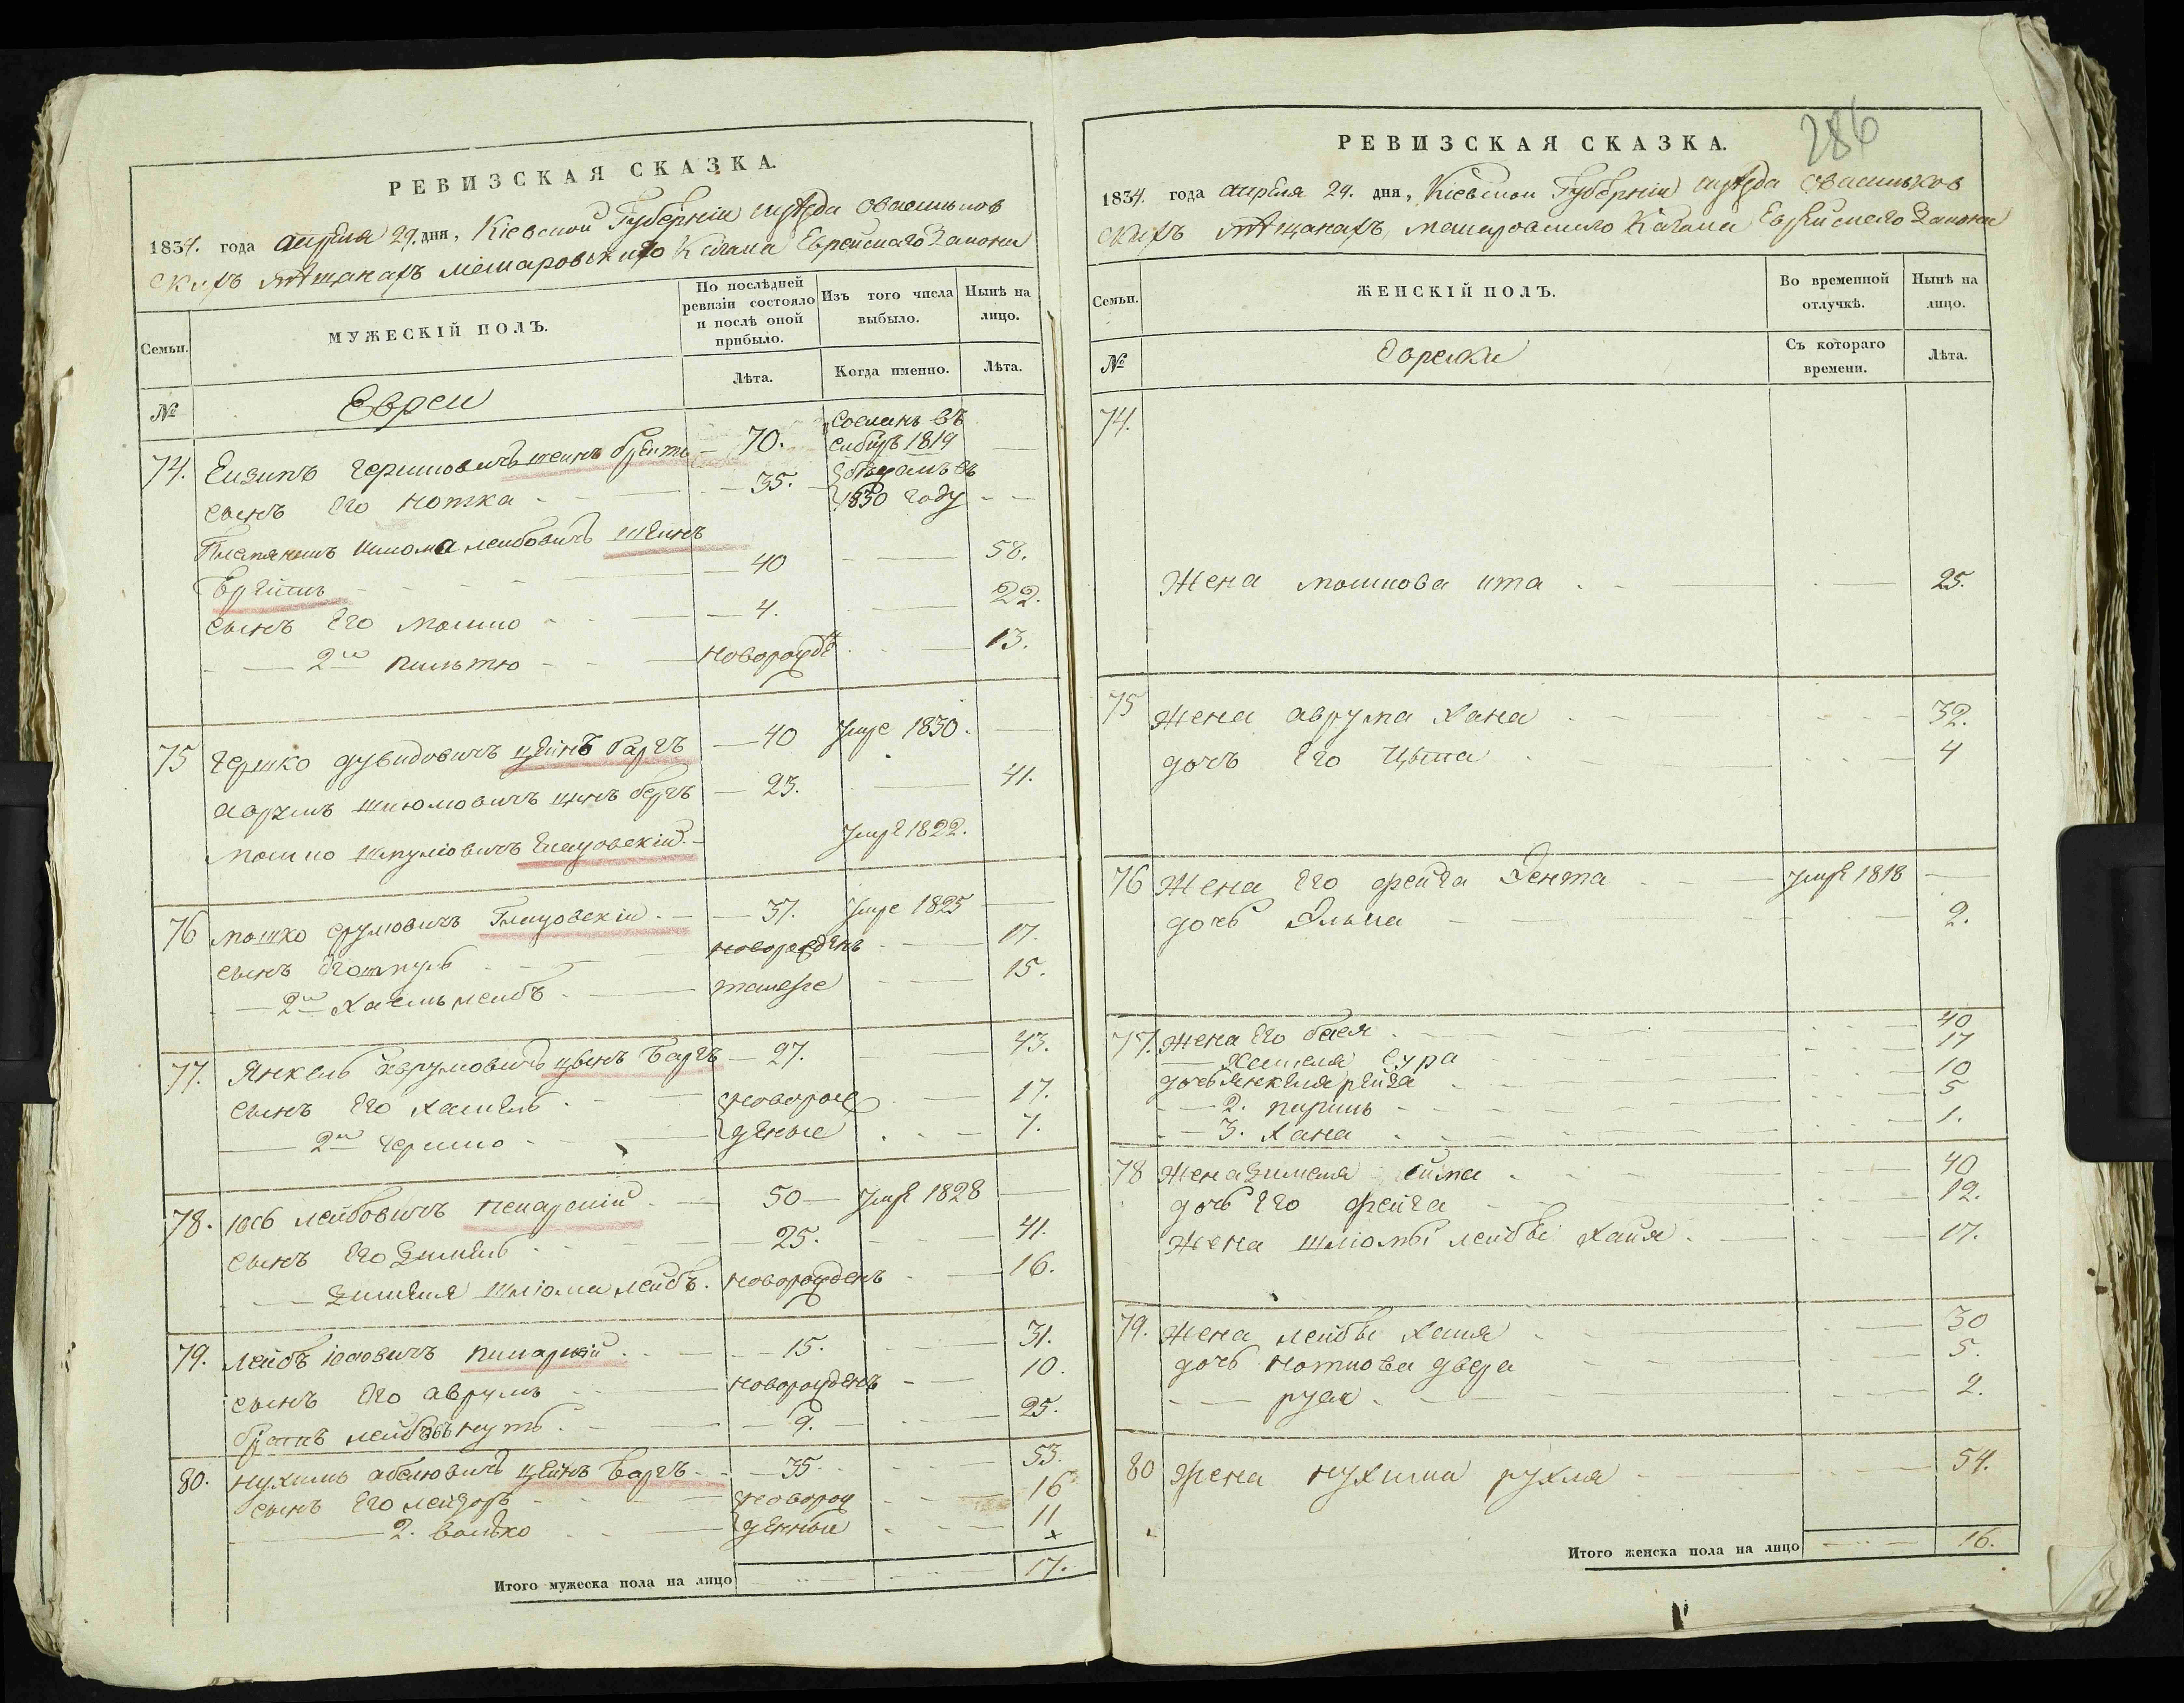 РЕВИЗСКАЯ СКАЗКА.
1834. года апреля 29. дня, Кіевской Губерніи уезда Овасильков
скихъ мѣщанахъ Мешаровского Кагала Еврейскаго Закона
Семьи.
МУЖЕСКІЙ ПОЛЪ.
По послѣдней ревизіи состояло и послѣ оной прибыло.
Изъ того числа выбыло.
Нынѣ на лицо.
№
Евреи
Лѣта.
Когда именно.
Лѣта.
74. Гершковичъ 70. Сосланъ въ сибиръ 1819
сынъ его Нотка 35. 1830 году
Шлома Лейбовичъ
40 58.
сынъ его Мошко 4. 22.
2й новорожд 13.
75 Гершко Дувидовичъ Цеинъ Баргъ 40 Умре 1830.
Аврумъ Шлюмовичъ бергъ 23. 41.
Мошко Шмулювичъ Умре 1822.
76 Мошко Срулювичъ 37. Умре 1825
сынъ его Шмуль новорожденъ 17.
2й Хаимъ Лейбъ тоже 15.
77. Янкель Аврумовичъ Баргъ 27. 43.
сынъ его Хаскель новорож 17.
2й Гершко деные 7.
78. Іосъ Лейбовичъ 50 Умре 1828
сынъ его Зимель 25. 41.
Зимеля Шліома Лейбъ. новорожденъ 16.
79. Лейбъ Іосовичъ Пикарскій 15. 31.
сынъ его Аврумъ новорожденъ 10.
братъ Лейбовъ 9. 25.
80. Нухимъ Абелювичъ Цеинъ Баргъ 35. 53.
сынъ его Лейзоръ новорож 16
2. Волько денные 11
Итого мужеска пола на лицо 17.
286
РЕВИЗСКАЯ СКАЗКА.
1834. года апреля 29. дня, Кіевской Губерніи уезда Овасильков
скихъ мѣщанахъ, Мешаровского Кагала Еврейского Закона
Семьи.
ЖЕНСКІЙ ПОЛЪ.
Во временной отлучкѣ.
Нынѣ на лицо.
№
Еврейки
Съ котораго времени.
Лѣта.
74.
Жена Мошкова Ита 25.
75 Жена Аврума Хана 32.
дочъ его 4
76 Жена его Фейга Дента Умре 1818
дочь Элька 2.
77. Жена его Бася 40
Хаскеля Сура 17
дочь Янкеля Рейза 10
2. 5
3. Хана 1.
78 Жена Зимеля 40
дочь его Фейга 12.
Жена Шліомы Лейбы Хайя 17.
79. Жена Лейбы Хая 30
дочь Двера 5.
Руся 2.
80 Жена Нухима Рухля 54.
Итого женска пола на лицо 16.